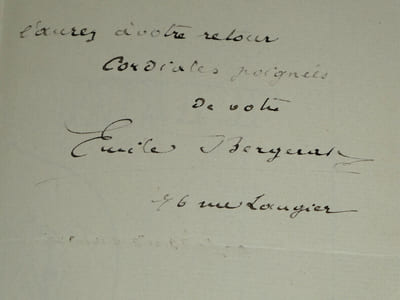 l'aurez à votre retour
Cordiales poignées
de votre
Emile Bergerat
76 rue Laugier